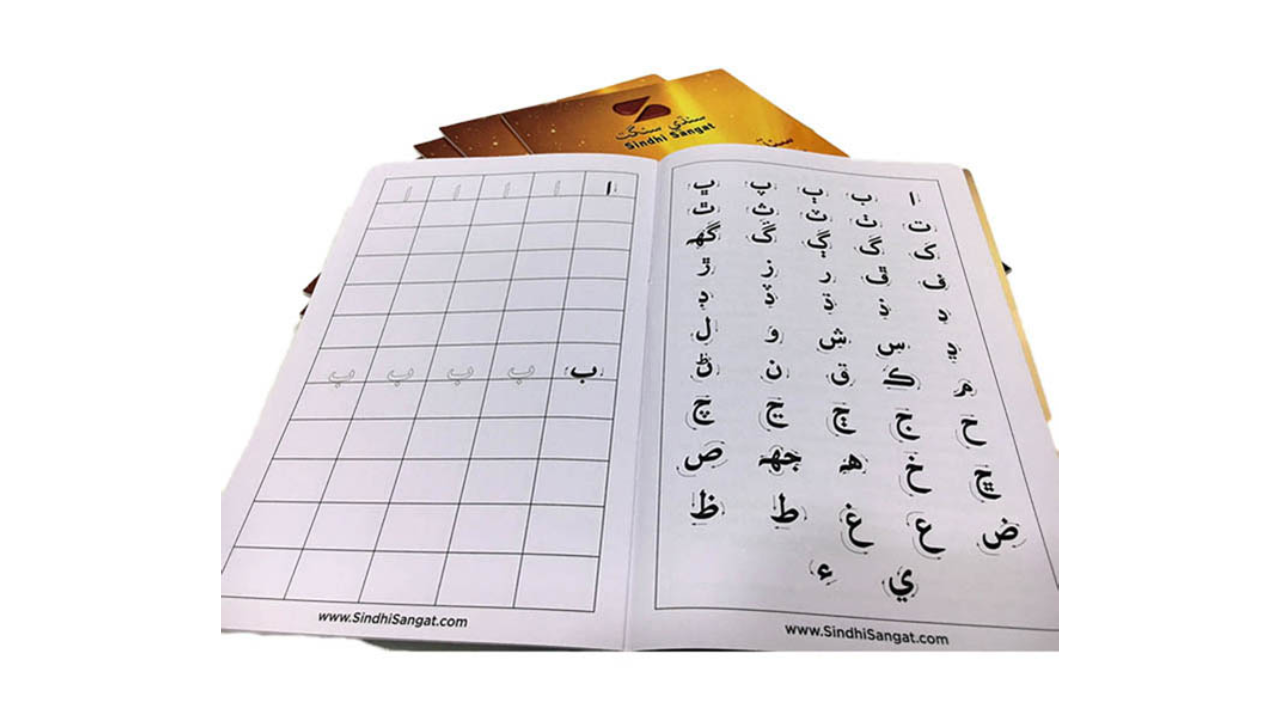 سنڌي سنگت
Sindhi Sangat
ا ا ا ا ا
ب ب ب ب ب
www.SindhiSangat.com
ا ب ٻ پ ڀ
ت ٺ ٽ ث ٿ
ک گ ڳ ڱ گهہ
ف ڦ ر ز ڙ
د ذ ڌ ڏ ڊ
ڍ س ش و ل
م ڪ ق ن ڻ
ح ج ڄ ڃ چ
ڇ خ ھ جهہ ص
ض ع غ ط ظ
ي ء
www.SindhiSangat.com